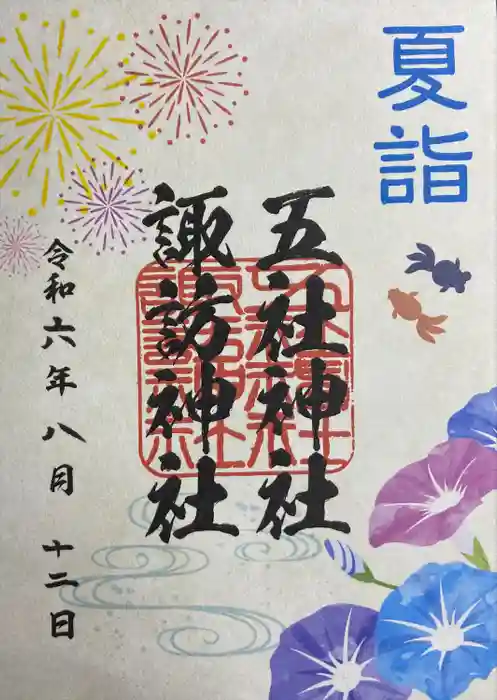 夏詣
五社神社
諏訪神社
令和六年八月十二日